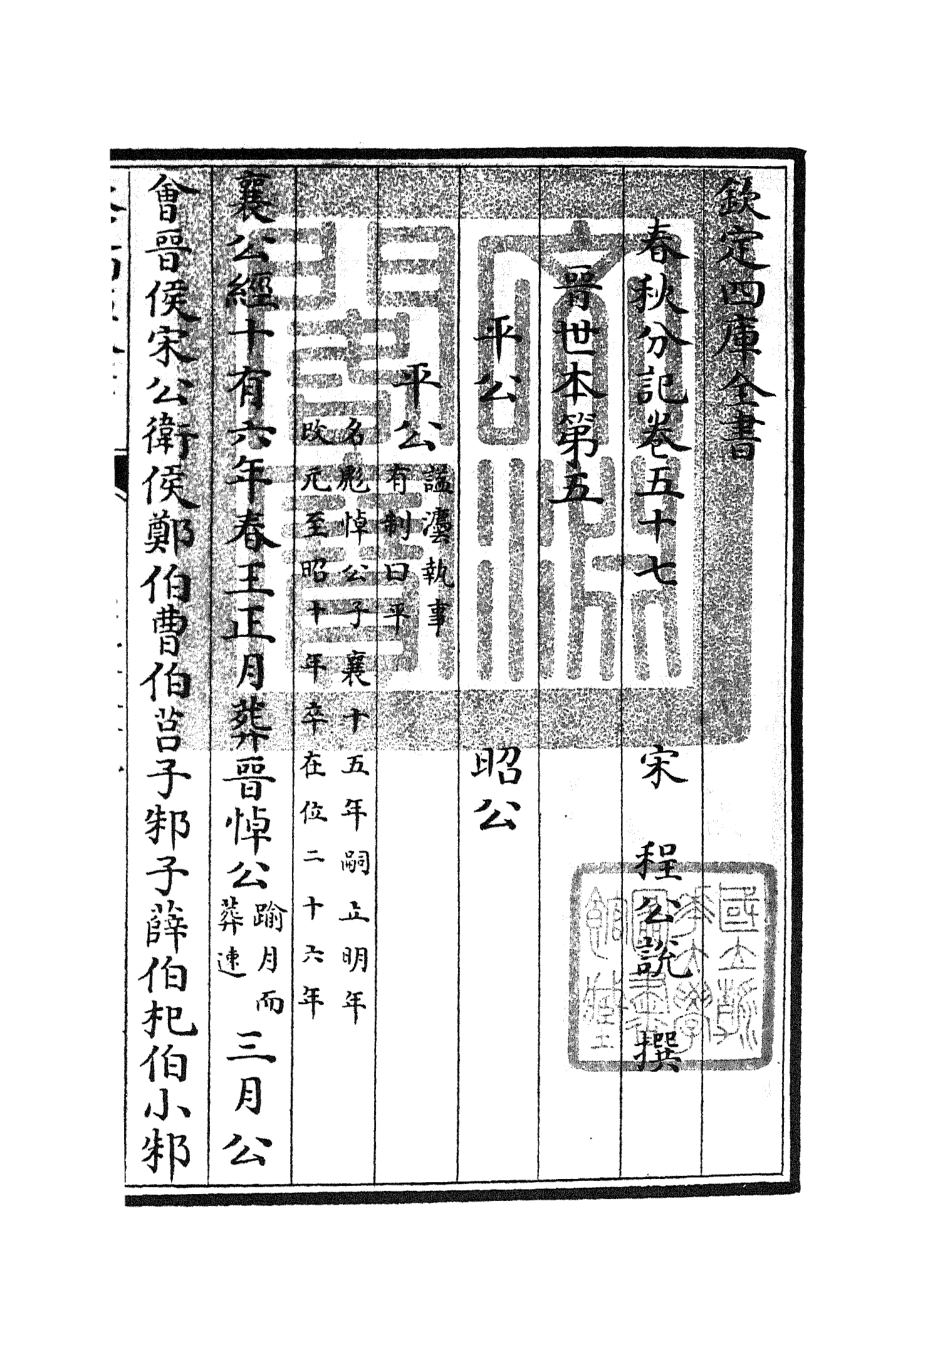 欽定四庫全書
春秋分記卷五十七　宋　程公說　撰
晉世本第五
平公　昭公
平公諡灋執事有制曰平
名彪悼公子襄十五年嗣立明年
改元至昭十年卒在位二十六年
襄公經十有六年春王正月葬晉悼公踰月而葬速三月公
會晉侯宋公衛侯鄭伯曹伯莒子邾子薛伯杞伯小邾